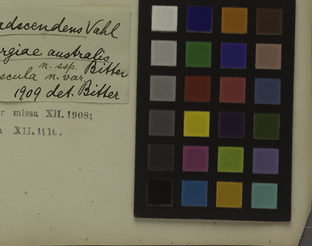 adscendens Vahl
rgiae australis
n. ssp. Bitter
scula n. var.
1909 det. Bitter
r missa XII. 1908;
XII. 1911.